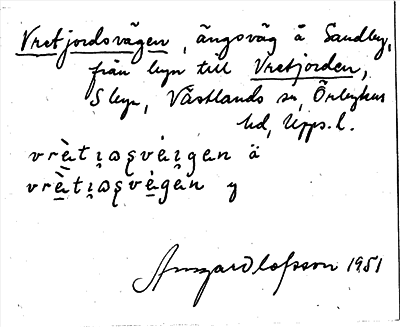 Vretjordsvägen, ängsväg å Sandby,
från byn till Vretjorden,
S byn, Västlands sn, Örbyhus
hd, Upps. l.
vrὲ̀tɩ̯ɷʂvè̩ɩ̯gan ä
vrὲ̀tɩ̯ɷʂvè̩gàn y
Olofsson 1951